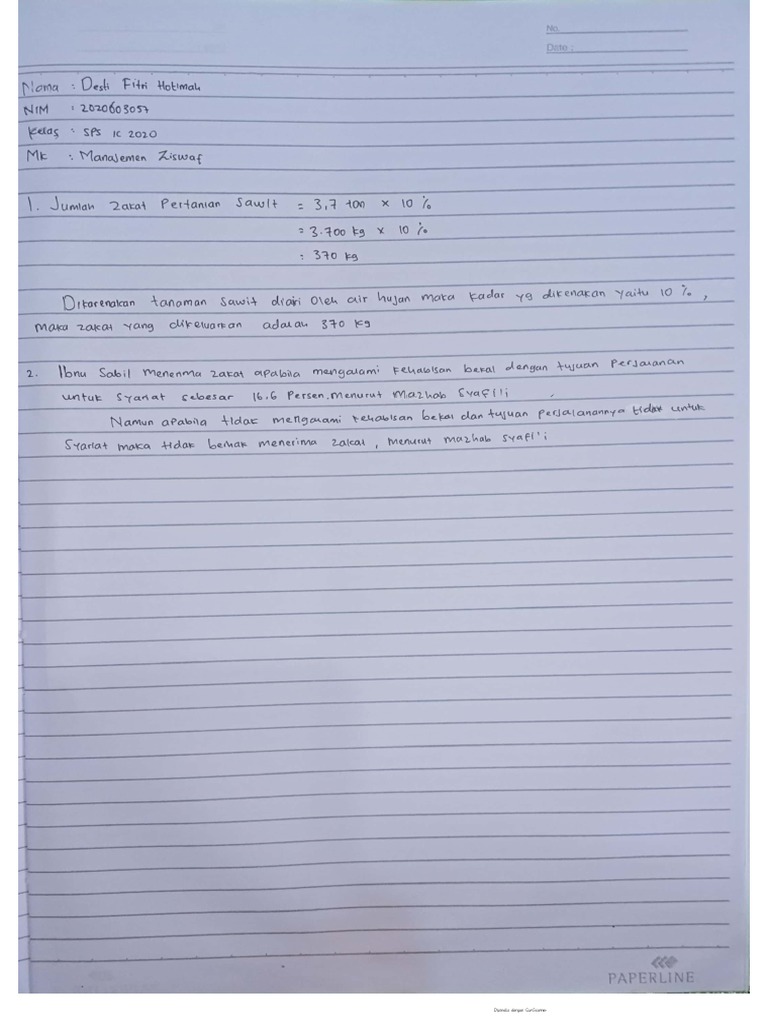 No.
Date :
Nama : Desti Fitri Hotimah
NIM : 2020603057
Kelas : SPS IC 2020
Mk : Manajemen Ziswaf
1. Jumlah Zakat Pertanian Sawit = 3,7 ton x 10 %
= 3.700 kg x 10 %
= 370 kg
Dikarenakan tanaman sawit diairi oleh air hujan maka kadar yg dikenakan yaitu 10 %,
maka zakat yang dikeluarkan adalah 370 kg
2. Ibnu Sabil menerima zakat apabila mengalami kehabisan bekal dengan tujuan Perjalanan
untuk syariat sebesar 16.6 Persen. Menurut Mazhab Syafi'i
Namun apabila tidak mengalami kehabisan bekal dan tujuan perjalanannya tidak untuk
Syariat maka tidak berhak menerima zakat, menurut mazhab syafi'i
PAPERLINE
Dipindai dengan CamScanner